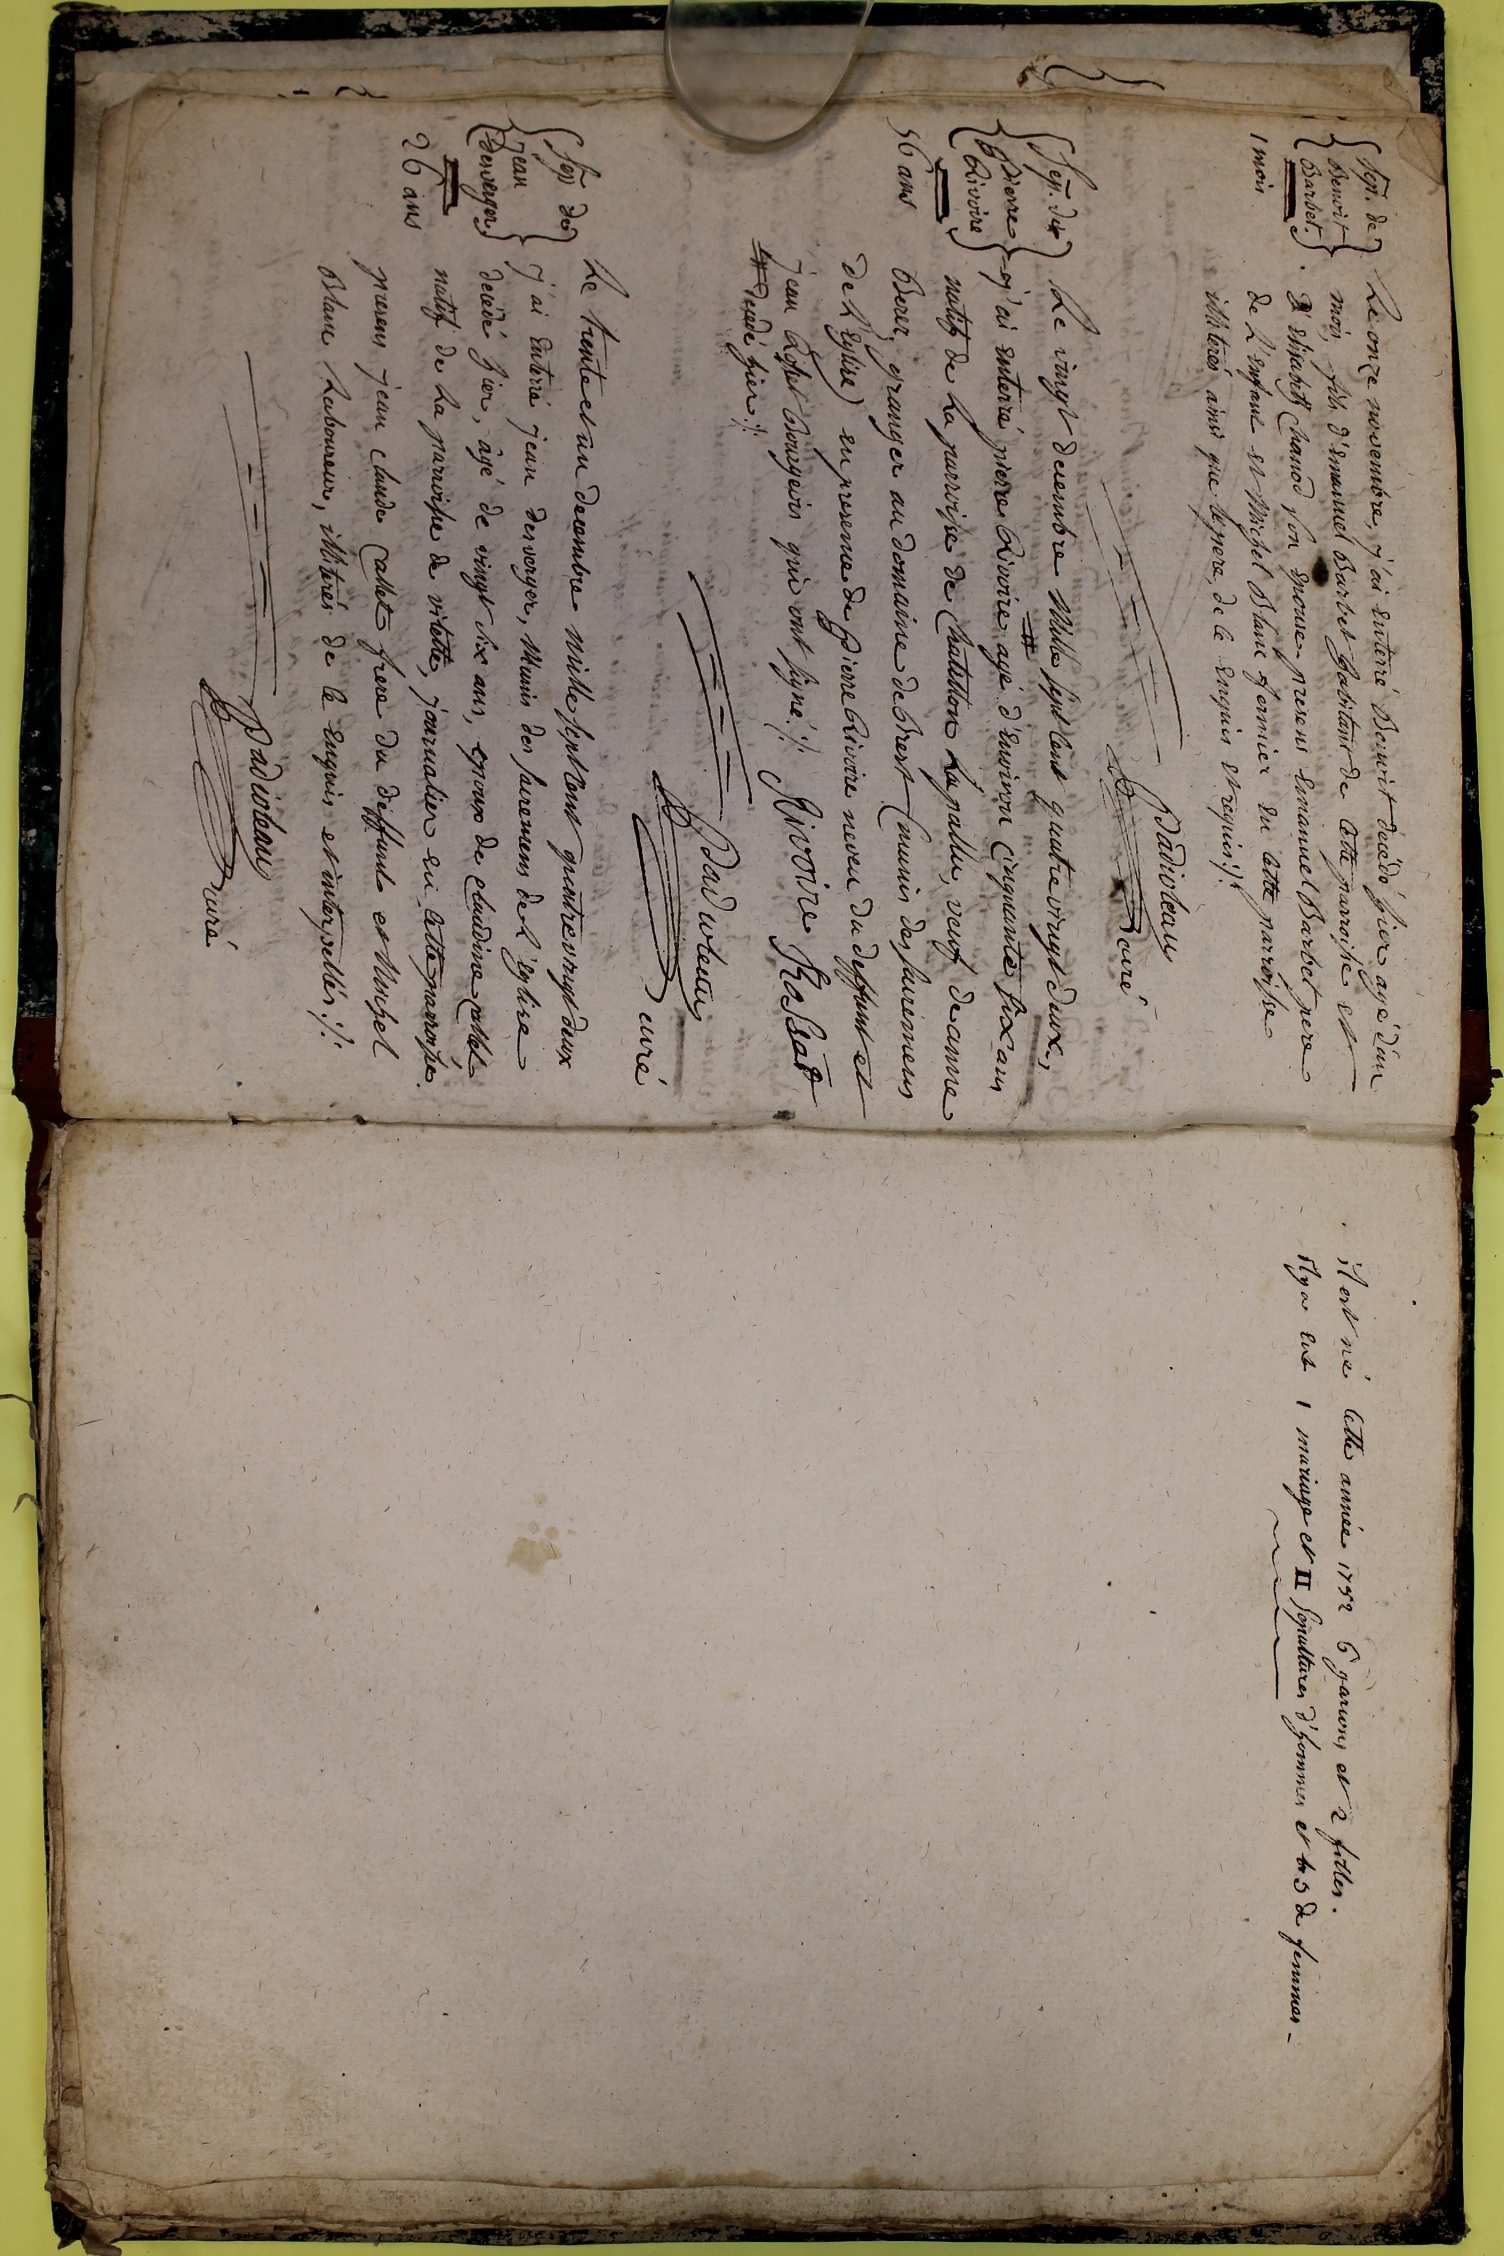 Sep. de
Benoit
Barbet.
1 mois
Le onze novembre, j'ai enterré Benoit décédé hier agé d'un
mois, fils d'emanuel Barbet habitant de cette parroisse et
d'elisabeth Chanod son epouse, presens emanuel Barbet pere
de l'enfant et Michel Blanc fermier en cette parroisse
illiterés ainsi que le pere, de ce enquis et requis ./.
Badioleau curé
Sep. de
Pierre
Rivoire
56 ans
Le vingt decembre mille sept cent quatre vingt deux,
j'ai enterré pierre Rivoire # agé d'environ cinquante six ans
natif de la parroise de Chatillon la palu, veuf de anne
Berer, granger au domaine de brest (munis des sacremens
de l'eglise) en presence de Pierre Rivoire neveu du deffunt et
jean Rosset Bourgeois qui ont signé ./. Rivoire Rossat
# décedé hier ./.
Badioleau curé
Sep de
jean
desverger
26 ans
Le trente et un decembre mille sept cent quatrevingt deux
j'ai enterré jean desverger, munis des sacremens de l'eglise
decédé hier, âgé de vingt six ans, epoux de claudine callet
natif de la parroisse de vilette, journalier en cette parroisse.
presens jean claude Callet frere du deffunt et Michel
Blanc Laboureur, illiterés de ce enquis et interpellés ./.
Badioleau curé
il est né cette année 1782 6 garcons et 2 filles.
il y a eut 1 mariage et II sepultures d'hommes et 3 de femmes -